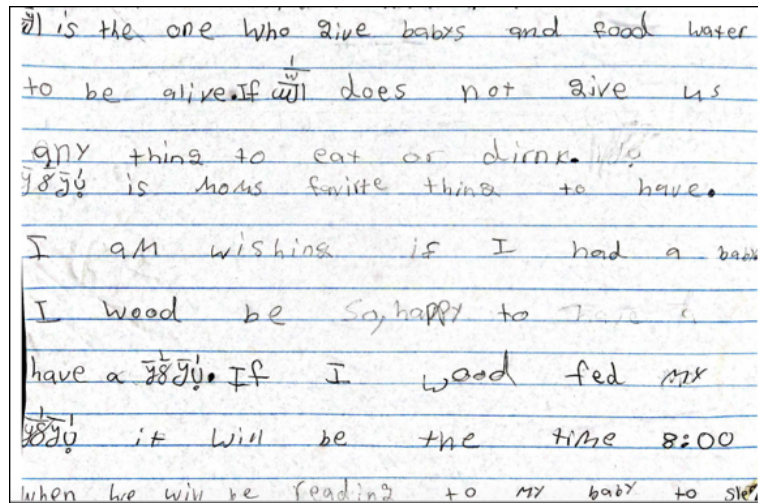 is the one who give babys and food water
to be alive. If does not give us
any thing to eat or dirnk.
is moms favirte thing to have.
I am wishing if I had a baby
I wood be So, happy to
have a If I wood fed my
it will be the time 8:00
when we will be reading to my baby to sleep